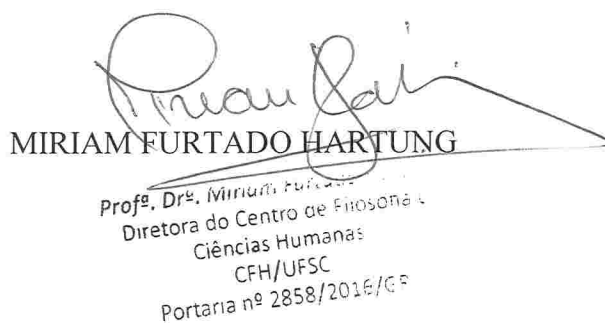 MIRIAM FURTADO HARTUNG
Profª. Drª. Miriam Furtado
Diretora do Centro de Filosofia e
Ciências Humanas
CFH/UFSC
Portaria nº 2858/2016/GR